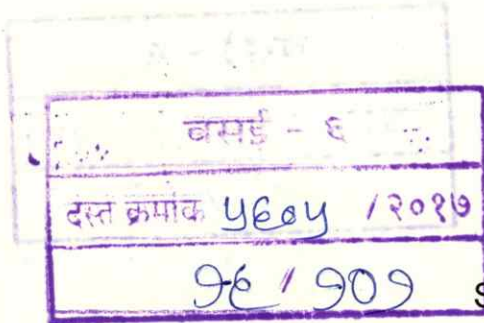 वसई - ६
दस्त क्रमांक ५६०५ / २०१७
१६ / १०१
S